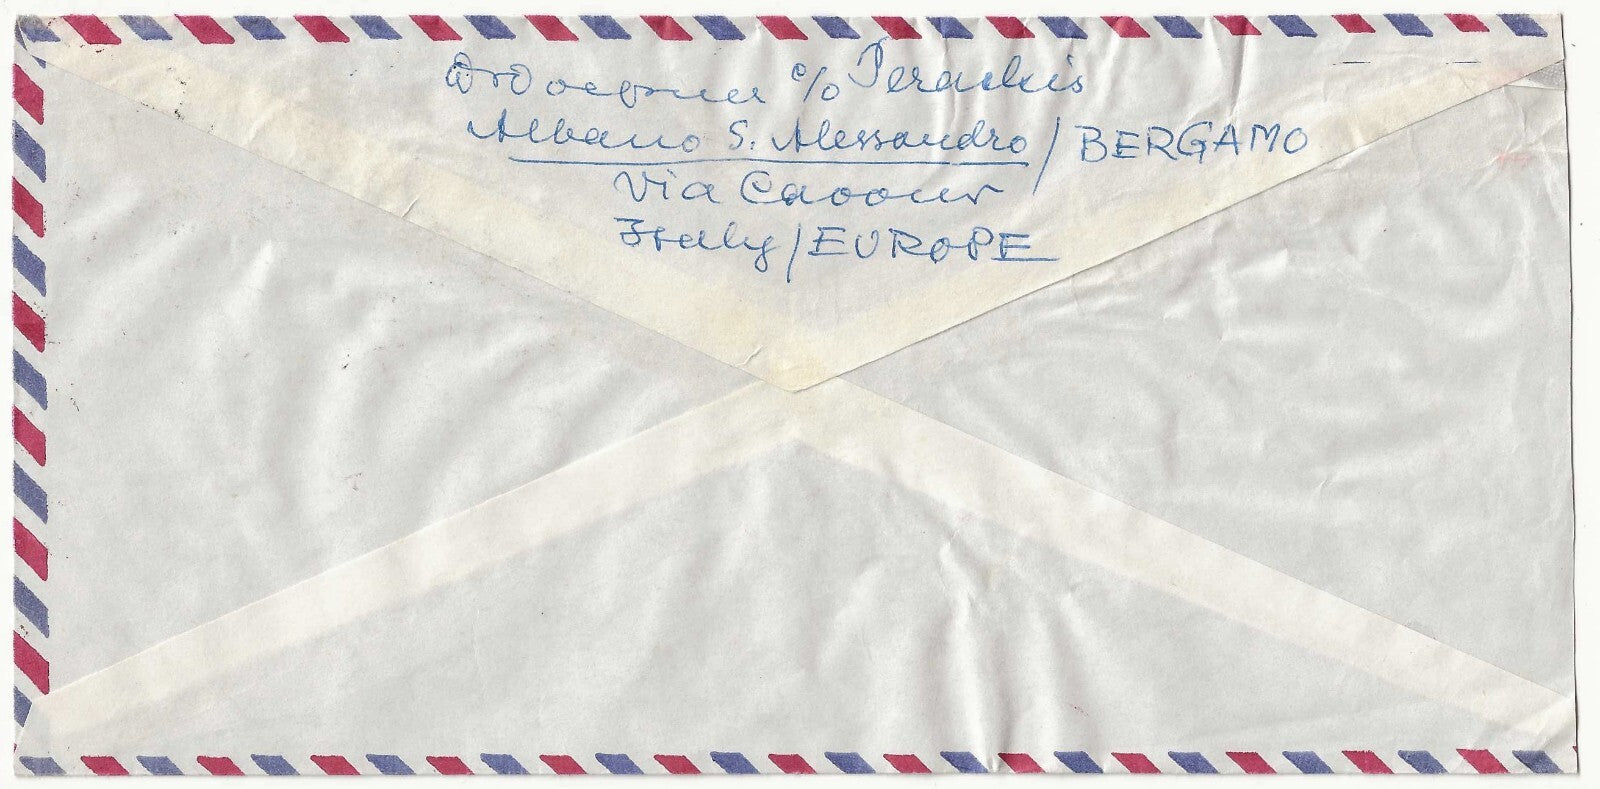 c/o Perackis
Albano S. Alessandro / BERGAMO
Via Cavour
Italy / EUROPE